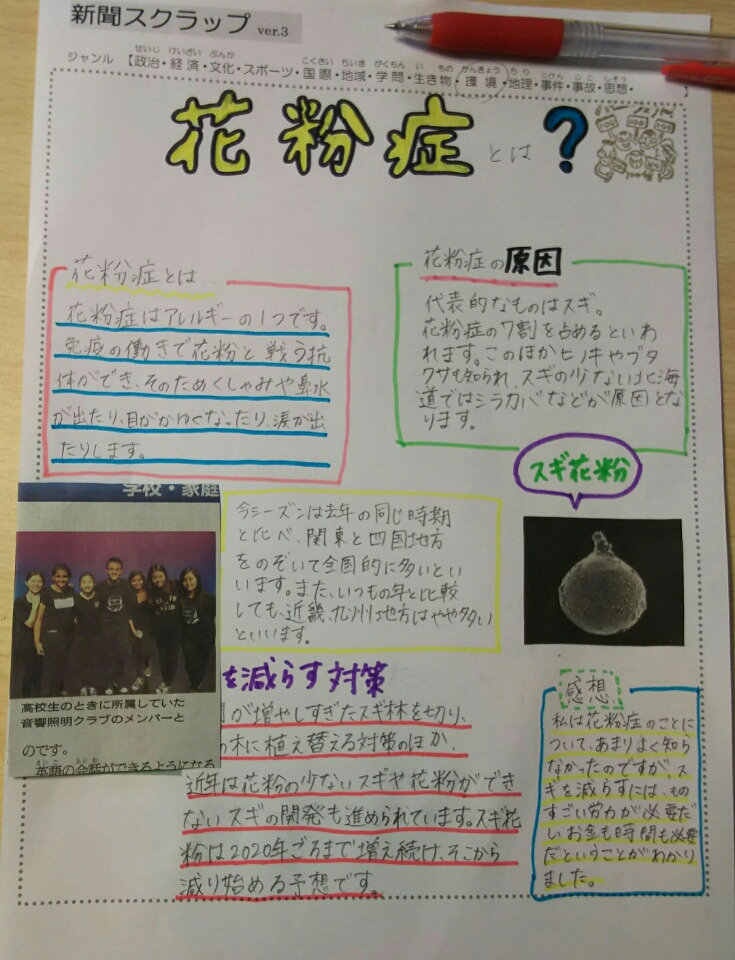 新聞スクラップ ver.3
ジャンル【政治・経済・文化・スポーツ・国際・地域・学問・生き物・環境・地理・事件・事故・思想・
せいじ けいざい ぶんか こくさい ちいき がくもん い もの かんきょう ちり じけん じこ しそう
花粉症とは?
花粉症とは…
花粉症はアレルギーの1つです。
免疫の働きで花粉と戦う抗
体ができ、そのためくしゃみや鼻水
が出たり、目がかゆくなったり、涙が出
たりします。
花粉症の原因
代表的なものはスギ。
花粉症の7割を占めるといわ
れます。このほかヒノキやブタ
クサも知られ、スギの少ない北海
道ではシラカバなどが原因とな
ります。
スギ花粉
今シーズンは去年の同じ時期
と比べ、関東と四国地方
をのぞいて全国的に多いとい
います。また、いつもの年と比較
しても、近畿、九州地方はやや多い
といいます。
学校・家庭
高校生のときに所属していた
音響照明クラブのメンバーと
のです。
英語の会話ができるようになる
を減らす対策
が増やしすぎたスギ林を切り、
の木に植え替える対策のほか、
近年は花粉の少ないスギや花粉ができ
ないスギの開発も進められています。スギ花
粉は2020年ごろまで増え続け、そこから
減り始める予想です。
感想
私は花粉症のことに
ついて、あまりよく知ら
なかったのですが、ス
ギを減らすには、もの
すごい労力が必要だ
しお金も時間も必要
だということがわかり
ました。